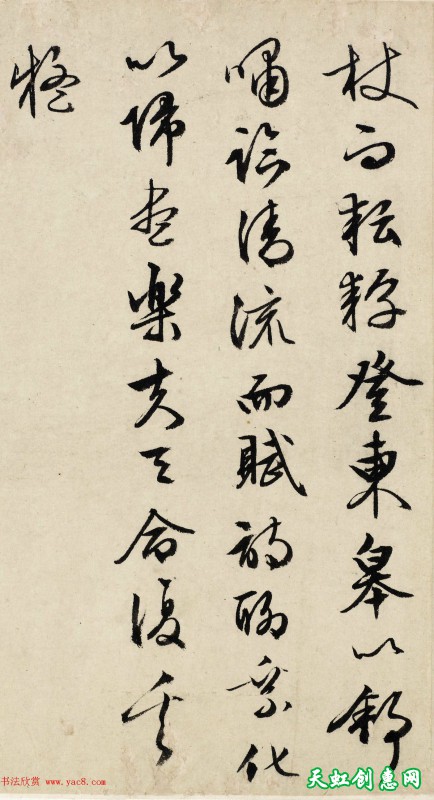 杖而耘耔登東皋以舒
嘯臨清流而賦詩聊乘化
以歸盡樂夫天命復奚
疑
书法欣赏 www.yac8.com
天虹创惠网